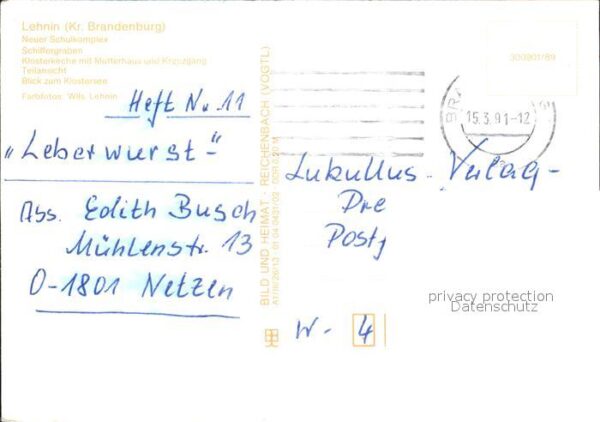 Lehnin (Kr. Brandenburg)
Neuer Schulkomplex
Schiffergraben
Klosterkirche mit Mutterhaus und Kreuzgang
Teilansicht
Blick zum Klostersee
Farbfotos: Wils, Lehnin
Heft Nr. 11
„Leberwurst“
Abs. Edith Busch
Mühlenstr. 13
O-1801 Netzen
BILD UND HEIMAT · REICHENBACH (VOGTL)
300901/89
15.3.91-12
Lukullus-Verlag-
Pre
Postf
W- 4
privacy protection
Datenschutz